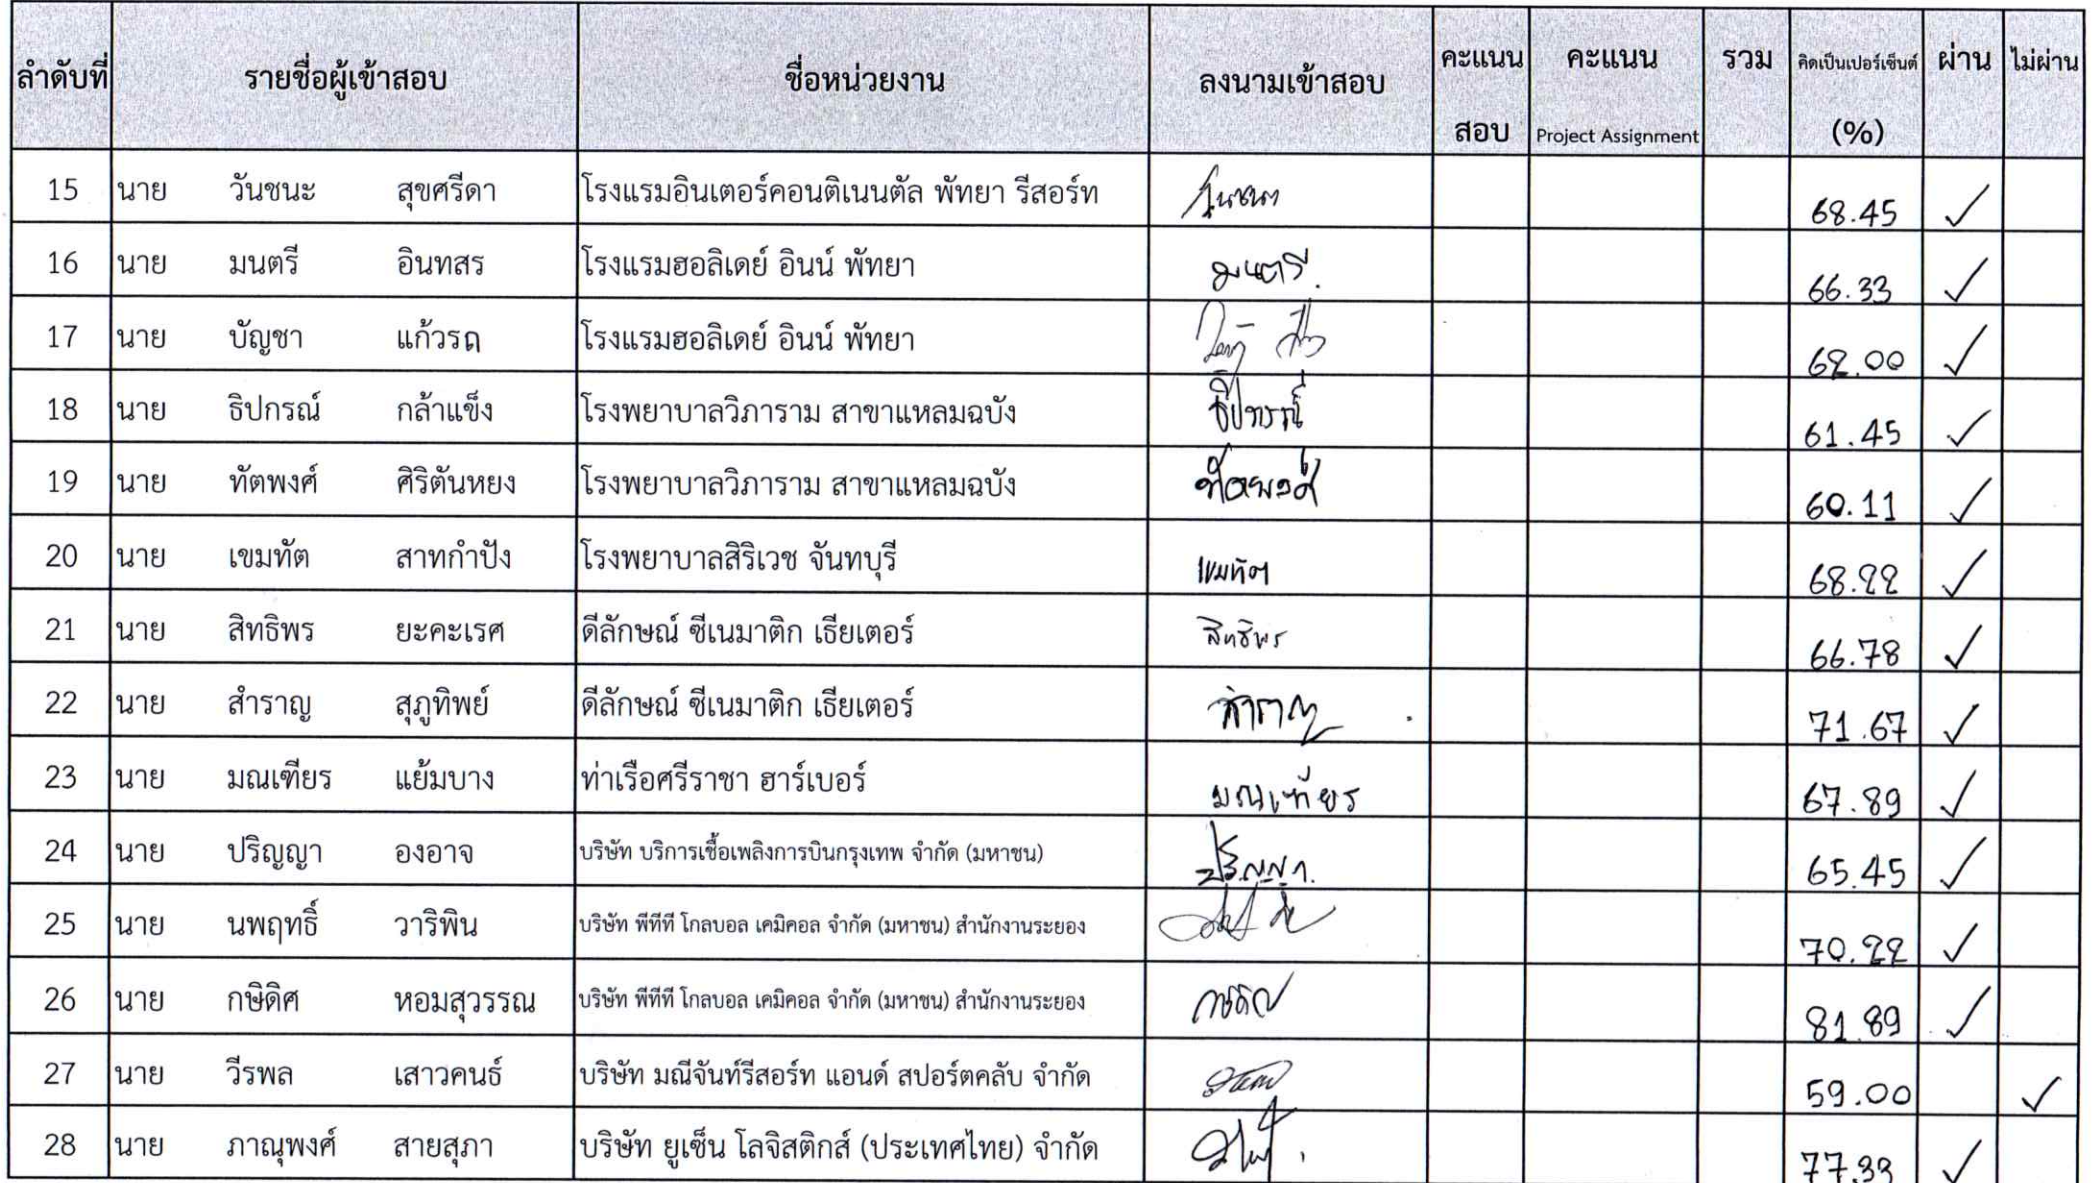 ลำดับที่ รายชื่อผู้เข้าสอบ ชื่อหน่วยงาน ลงนามเข้าสอบ คะแนนสอบ คะแนน Project Assignment รวม คิดเป็นเปอร์เซ็นต์ (%) ผ่าน ไม่ผ่าน
15 นาย วันชนะ สุขศรีดา โรงแรมอินเตอร์คอนติเนนตัล พัทยา รีสอร์ท วันชนะ 68.45 ✓
16 นาย มนตรี อินทสร โรงแรมฮอลิเดย์ อินน์ พัทยา มนตรี. 66.33 ✓
17 นาย บัญชา แก้วรถ โรงแรมฮอลิเดย์ อินน์ พัทยา ✓
18 นาย ธิปกรณ์ กล้าแข็ง โรงพยาบาลวิภาราม สาขาแหลมฉบัง ธิปกรณ์ 61.45 ✓
19 นาย ทัตพงศ์ ศิริตันหยง โรงพยาบาลวิภาราม สาขาแหลมฉบัง ทัตพงศ์ 60.11 ✓
20 นาย เขมทัต สาทกำปัง โรงพยาบาลสิริเวช จันทบุรี เขมทัต 68.22 ✓
21 นาย สิทธิพร ยะคะเรศ ดีลักษณ์ ซีเนมาติก เธียเตอร์ สิทธิพร 66.78 ✓
22 นาย สำราญ สุภูทิพย์ ดีลักษณ์ ซีเนมาติก เธียเตอร์ สำราญ 71.67 ✓
23 นาย มณเฑียร แย้มบาง ท่าเรือศรีราชา ฮาร์เบอร์ มณเฑียร 67.89 ✓
24 นาย ปริญญา องอาจ บริษัท บริการเชื้อเพลิงการบินกรุงเทพ จำกัด (มหาชน) ปริญญา. 65.45 ✓
25 นาย นพฤทธิ์ วาริพิน บริษัท พีทีที โกลบอล เคมิคอล จำกัด (มหาชน) สำนักงานระยอง 70.22 ✓
26 นาย กษิดิศ หอมสุวรรณ บริษัท พีทีที โกลบอล เคมิคอล จำกัด (มหาชน) สำนักงานระยอง กษิดิศ 81.89 ✓
27 นาย วีรพล เสาวคนธ์ บริษัท มณีจันท์รีสอร์ท แอนด์ สปอร์ตคลับ จำกัด 59.00 ✓
28 นาย ภาณุพงศ์ สายสุภา บริษัท ยูเซ็น โลจิสติกส์ (ประเทศไทย) จำกัด 77.33 ✓